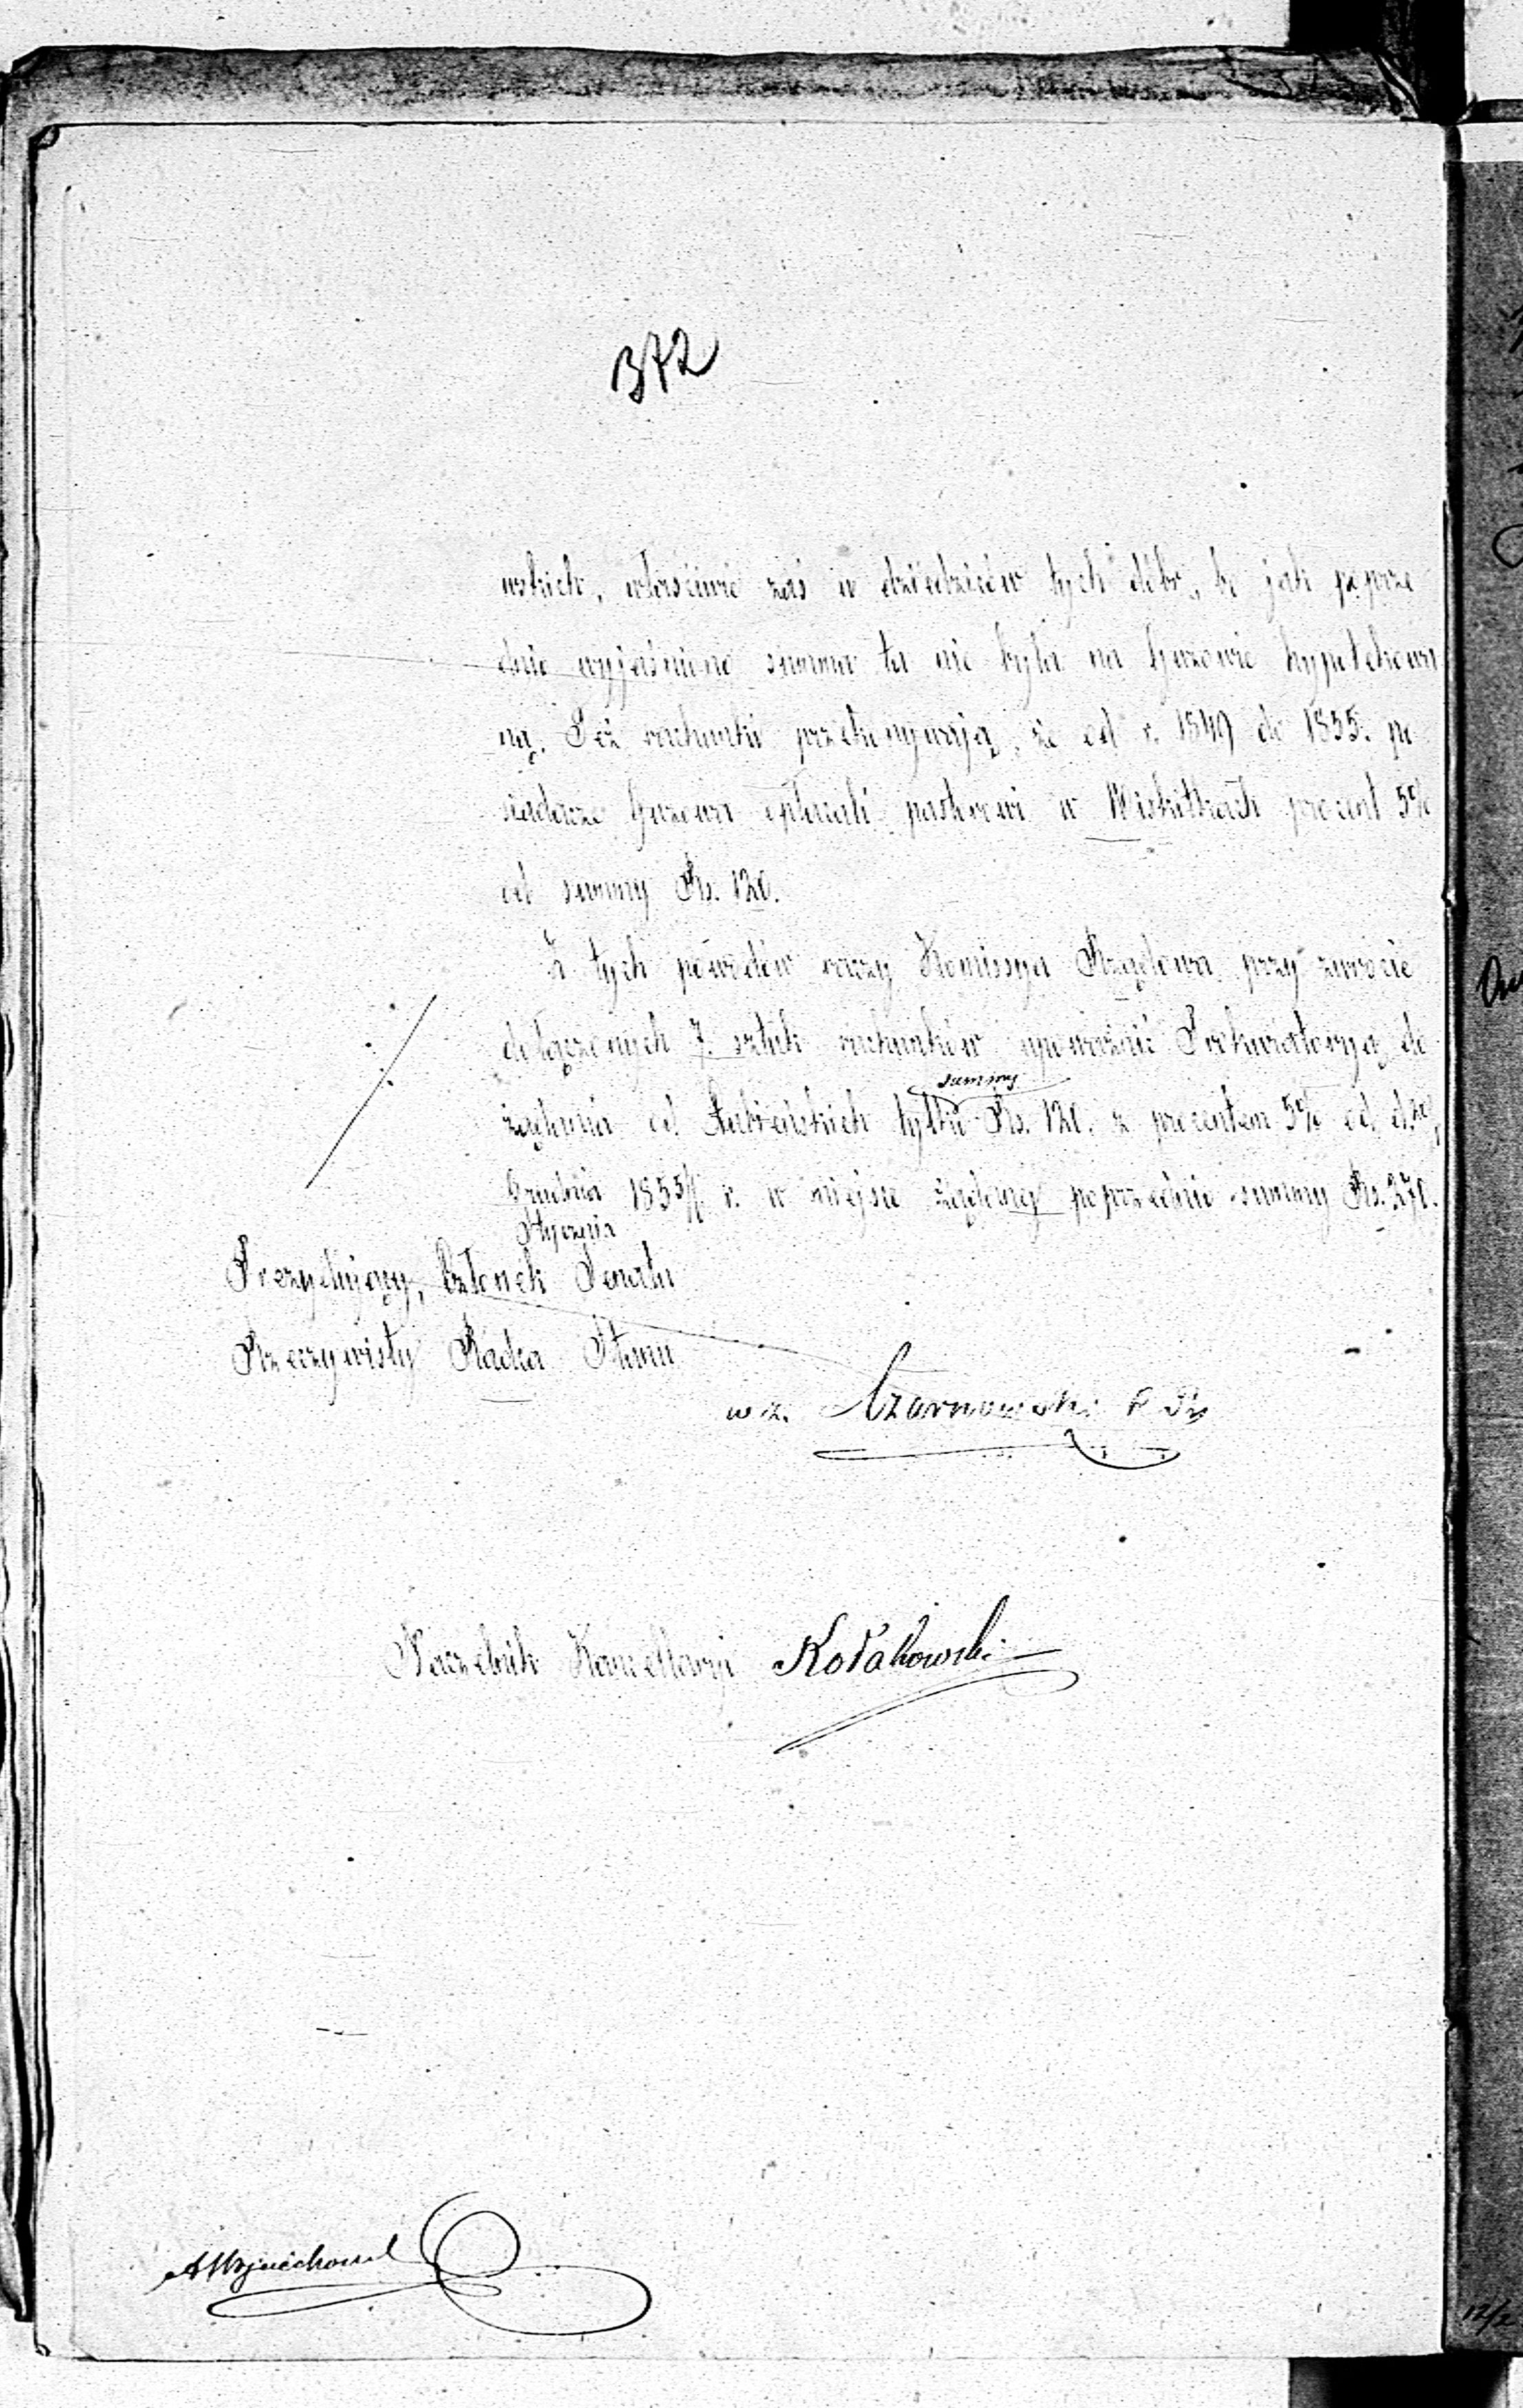 372
wskich, właściwie zaś w dziedziców tych dóbr, bo jak poprze
dnio wyjaśniono summa ta nie była na Guzowie hypotekowa
ną. Też rachunki przekonywają, że od r. 1849 do 1855. po
siadacze Guzowa opłacali pastorowi w Wiskitkach procent 5%
od summy Rs. 120.
Z tych powodów raczy Kommissya Rządowa przy zwrocie
dołączonych 7. sztuk rachunków upoważnić Prokuratoryą do
summy
żądania od Łubieńskich tylko Rs. 120. z procentem 5% od d.
Grudnia 1855/6 r. w miejsce żądanej poprzednio summy Rs. 270.
Stycznia
Prezydujący, Członek Senatu
Rzeczywisty Radca Stanu
w z. Czarnowski
Naczelnik Kancellaryi Kołakowski
AWojciechowsk